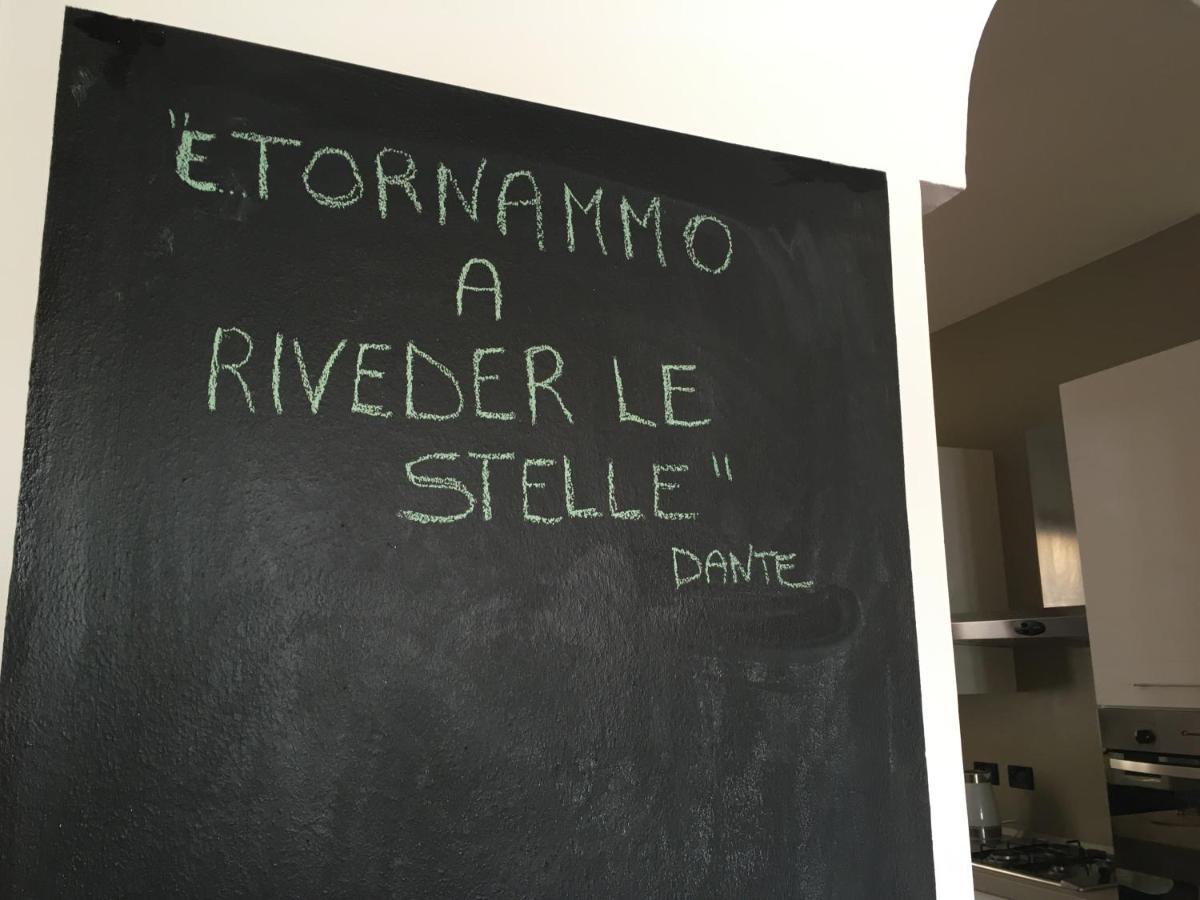 "E...TORNAMMO
A
RIVEDER LE
STELLE"
DANTE